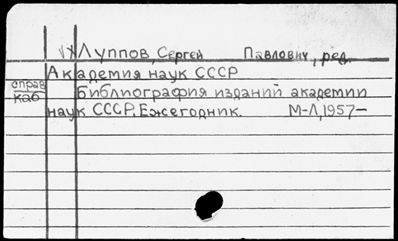 Луппов, Сергей Павлович, ред.
Академия наук СССР
справ
каб
Библиография изданий академии
наук СССР. Ежегодник. М-Л, 1957-